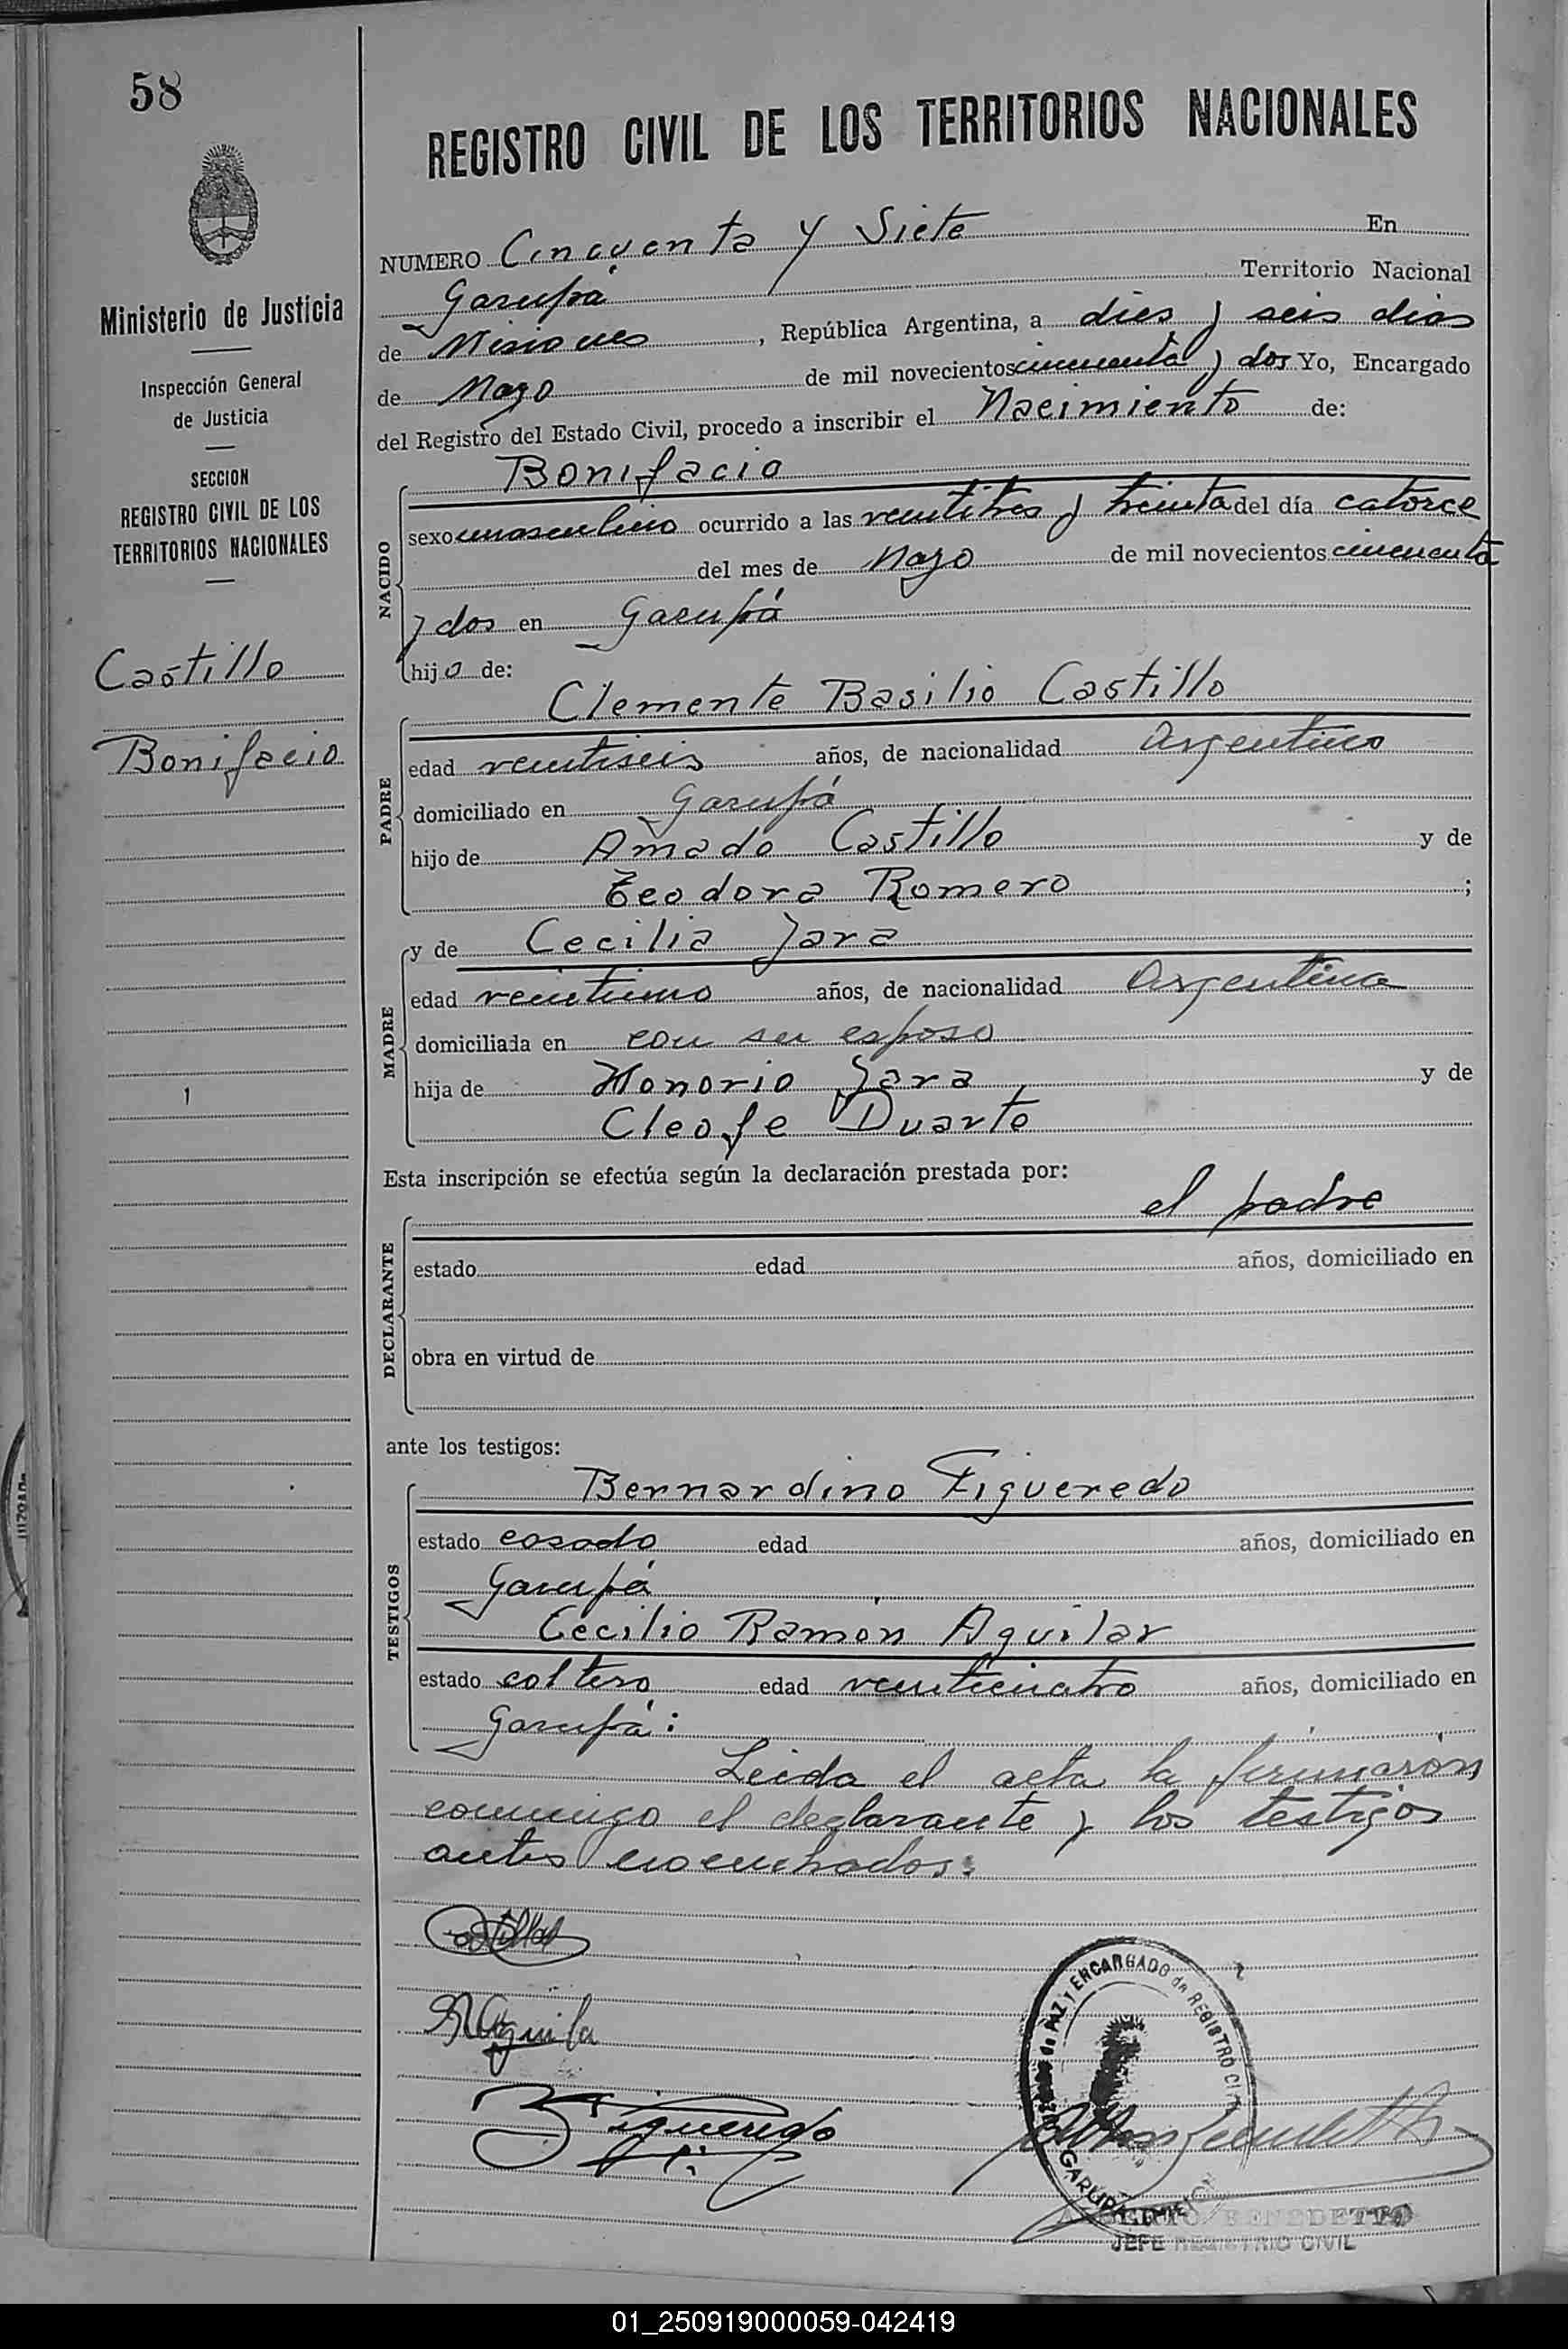 58
REGISTRO CIVIL DE LOS TERRITORIOS NACIONALES
Ministerio de Justicia
Inspección General
de Justicia
SECCION
REGISTRO CIVIL DE LOS
TERRITORIOS NACIONALES
Castillo
Bonifacio
NUMERO Cincuenta y Siete En
Garupá Territorio Nacional
de Misiones, República Argentina, a dies y seis dias
de Mayo de mil novecientos cincuenta y dos Yo, Encargado
del Registro del Estado Civil, procedo a inscribir el Nacimiento de:
NACIDO
Bonifacio
sexo masculino ocurrido a las veintitres y treinta del día catorce
del mes de Mayo de mil novecientos cincuenta
y dos en Garupá
hijo de:
PADRE
Clemente Basilio Castillo
edad veintiseis años, de nacionalidad Argentino
domiciliado en Garupá
hijo de Amado Castillo y de
Teodora Romero ;
MADRE
y de Cecilia Jara
edad veintiuno años, de nacionalidad Argentina
domiciliada en con su esposo
hija de Honorio Jara y de
Cleofe Duarte
Esta inscripción se efectúa según la declaración prestada por:
DECLARANTE
el padre
estado edad años, domiciliado en
obra en virtud de
ante los testigos:
TESTIGOS
Bernardino Figueredo
estado casado edad años, domiciliado en
Garupá
Cecilio Ramón Aguilar
estado soltero edad veinticuatro años, domiciliado en
Garupá:
Leida el acta la firmarón
conmigo el declarante y los testigos
antes nombrados.
Castillo
RAguila
B Figueredo
DE PAZ Y ENCARGADO de REGISTRO CIVIL
GARUPA
ALBERTO BENEDETTO
JEFE REGISTRO CIVIL
01_250919000059-042419